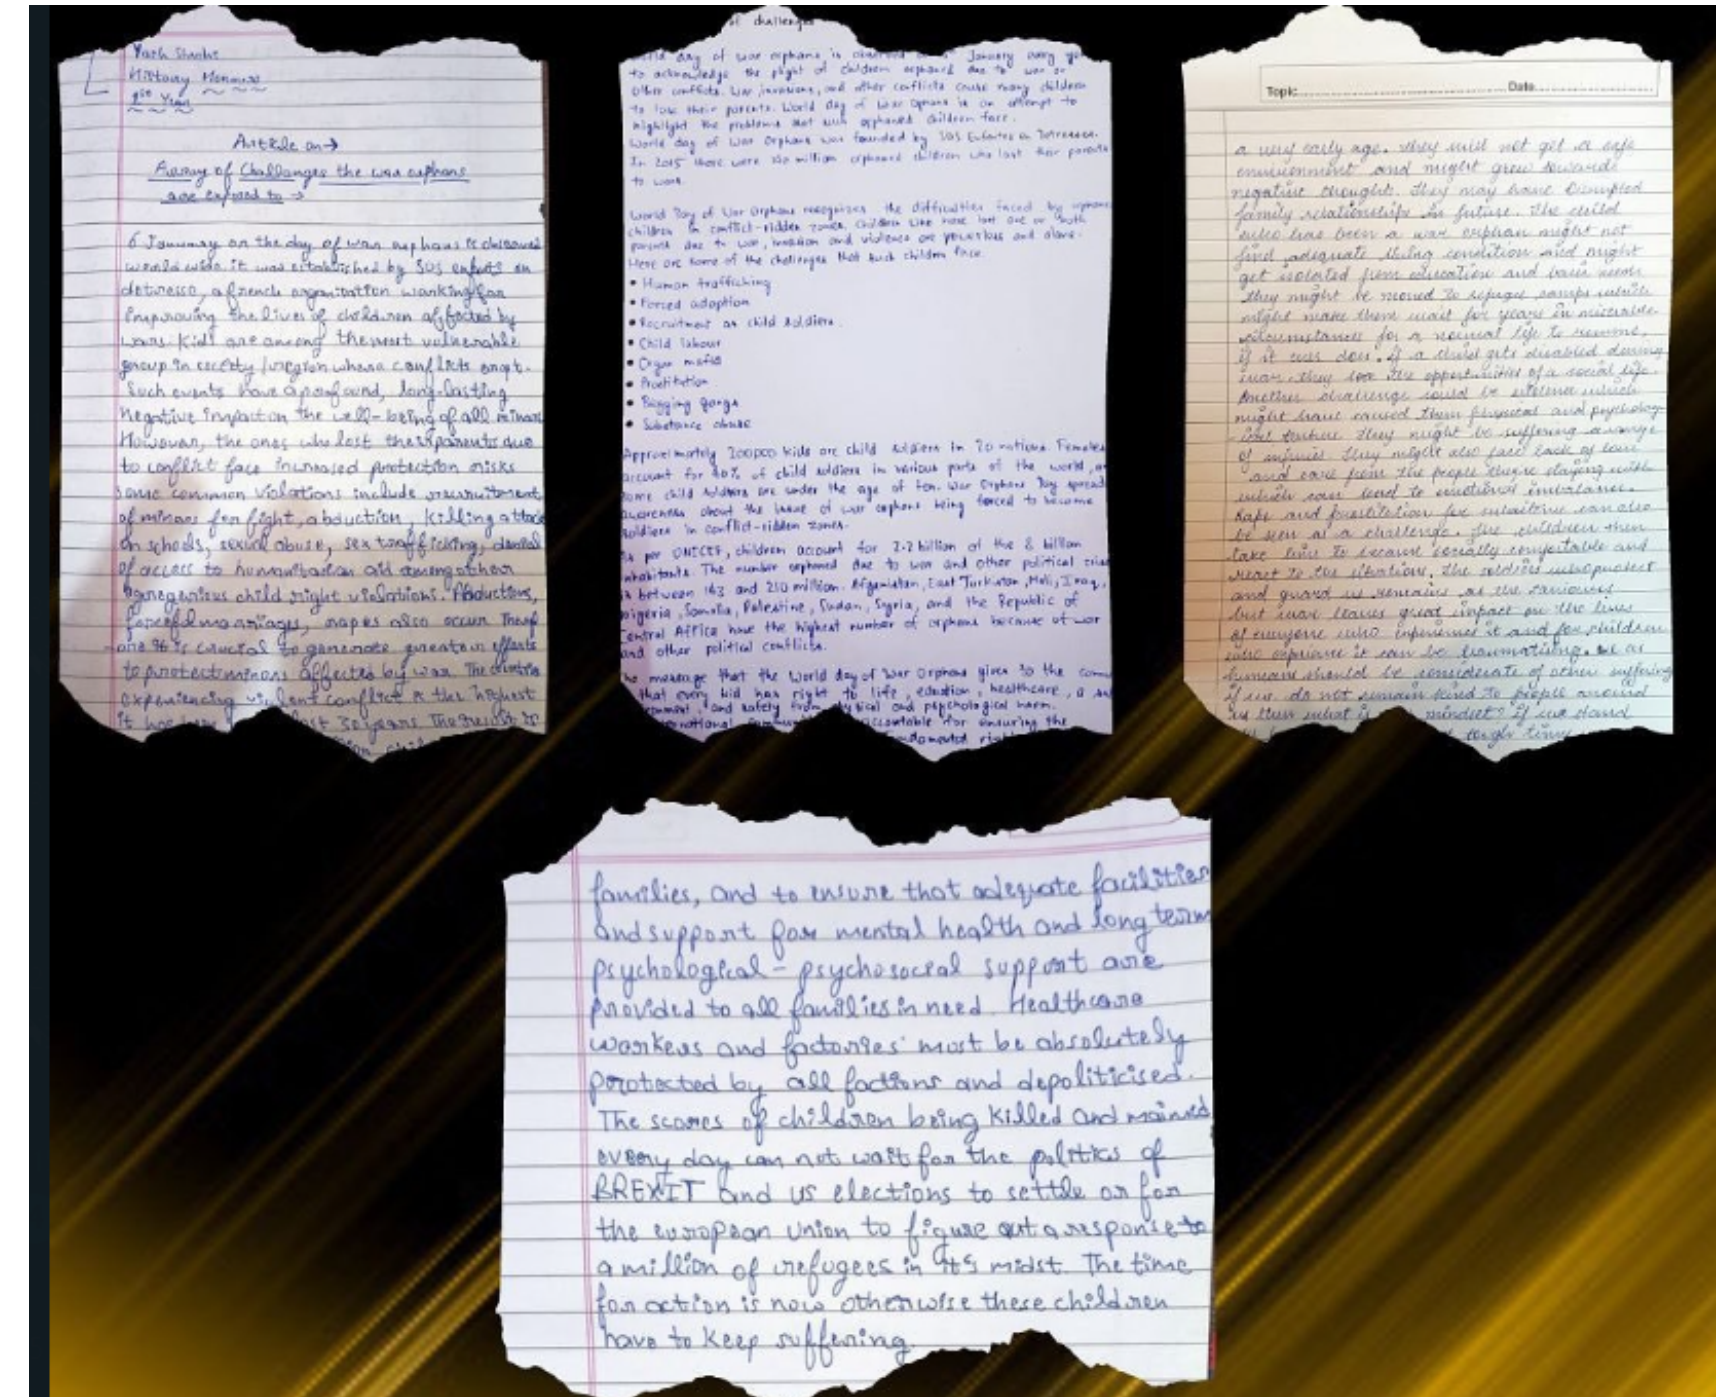 Yash
History
1st Year
Article on →
Array of Challanges the war orphans
are exposed to →
6 January on the day of war orphans is observed
world wide. it was established by SOS enfants en
detresse, a french organization working for
improving the lives of children affected by
wars. Kids are among the most vulnerable
group in society /region where conflicts erupt.
Such events have a profound, long-lasting
negative impact on the well-being of all minors
However, the ones who lost their parents due
to conflict face increased protection risks
some common violations include recruitment
of minors for fight, abduction, killing attack
on schools, sexual abuse, sex trafficking, denial
of access to humanitarian aid among other
egregenious child right violations. Abductions,
forceful marriages, rapes also occur. Theref
-ore it is crucial to generate greater efforts
to protect minors affected by war. The
experiencing violent conflict is the highest
it has been last 30 years. The result is
of challenges
World day of war orphans is observed January every year
to acknowledge the plight of children orphaned due to war or
other conflicts. War, invasions, and other conflicts cause many children
to lose their parents. World day of War Orphans is an attempt to
highlight the problems that such orphaned children face.
World day of War Orphans was founded by SOS Enfantes en Detresses.
In 2015 there were 140 million orphaned children who lost their parents
to wars.
World Day of War Orphans recognizes the difficulties faced by orphans
children in conflict-ridden zones. Children who have lost one or both
parents due to war, invasion and violence are powerless and alone.
Here are some of the challenges that such children face.
• Human trafficking
• Forced adoption
• Recruitment as child soldiers.
• Child labour
• Organ mafia
• Prostitution
• Begging gangs
• Substance abuse
Approximately 300000 kids are child soldiers in 20 nations. Females
account for 40% of child soldiers in various parts of the world, and
some child soldiers are under the age of ten. War Orphans Day spreads
awareness about the issue of war orphans being forced to become
soldiers in conflict-ridden zones.
As per UNICEF, children account for 2.2 billion of the 8 billion
inhabitants. The number orphaned due to war and other political crises
is between 143 and 210 million. Afganistan, East Turkistan, Mali, Iraq,
Nigeria, Somalia, Palestine, Sudan, Syria, and the Republic of
Central Africa have the highest number of orphans because of war
and other political conflicts.
The message that the World day of War Orphans gives to the
that every kid has right to life, education, healthcare, a
and safety from physical and psychological harm.
accountable for ensuring the
fundamental
Topic: Date
a very early age. They will not get a safe
environment and might grow towards
negative thought. They may have Disrupted
family relationships in future. The child
who has been a war orphan might not
find adequate living condition and might
get isolated from education and basic needs
They might be moved to refugee camps which
might make them wait for years in miserable
circumstances for a normal life to resume,
if it ever does. If a child gets disabled during
war they lose the opportunities of a social life.
Another challenge could be violence which
might have caused them physical and psycholog-
-ical torture. They might be suffering a range
of injuries. They might also face lack of love
and care from the people they're staying with
which can lead to emotional imbalance.
Rape and prostitution for can also
be seen as a challenge. The children then
take time to become socially comfortable and
react to the situations. The soldiers who protect
and guard us remains as the
but war leaves great impact on the lives
of everyone who experiences it and for children
who experience it can be traumatising. we as
humans should be considerate of other suffering
if we do not remain kind to people around
us then what is mindset? if we stand
tough times
families, and to ensure that adequate facilities
and support for mental health and long term
psychological - psychosocial support are
provided to all families in need. Healthcare
workers and factories must be absolutely
protected by all factions and depoliticised.
The scores of children being killed and maimed
every day can not wait for the politics of
BREXIT and us elections to settle or for
the european union to figure out a response to
a million of refugees in it's midst. The time
for action is now otherwise these children
have to keep suffering.